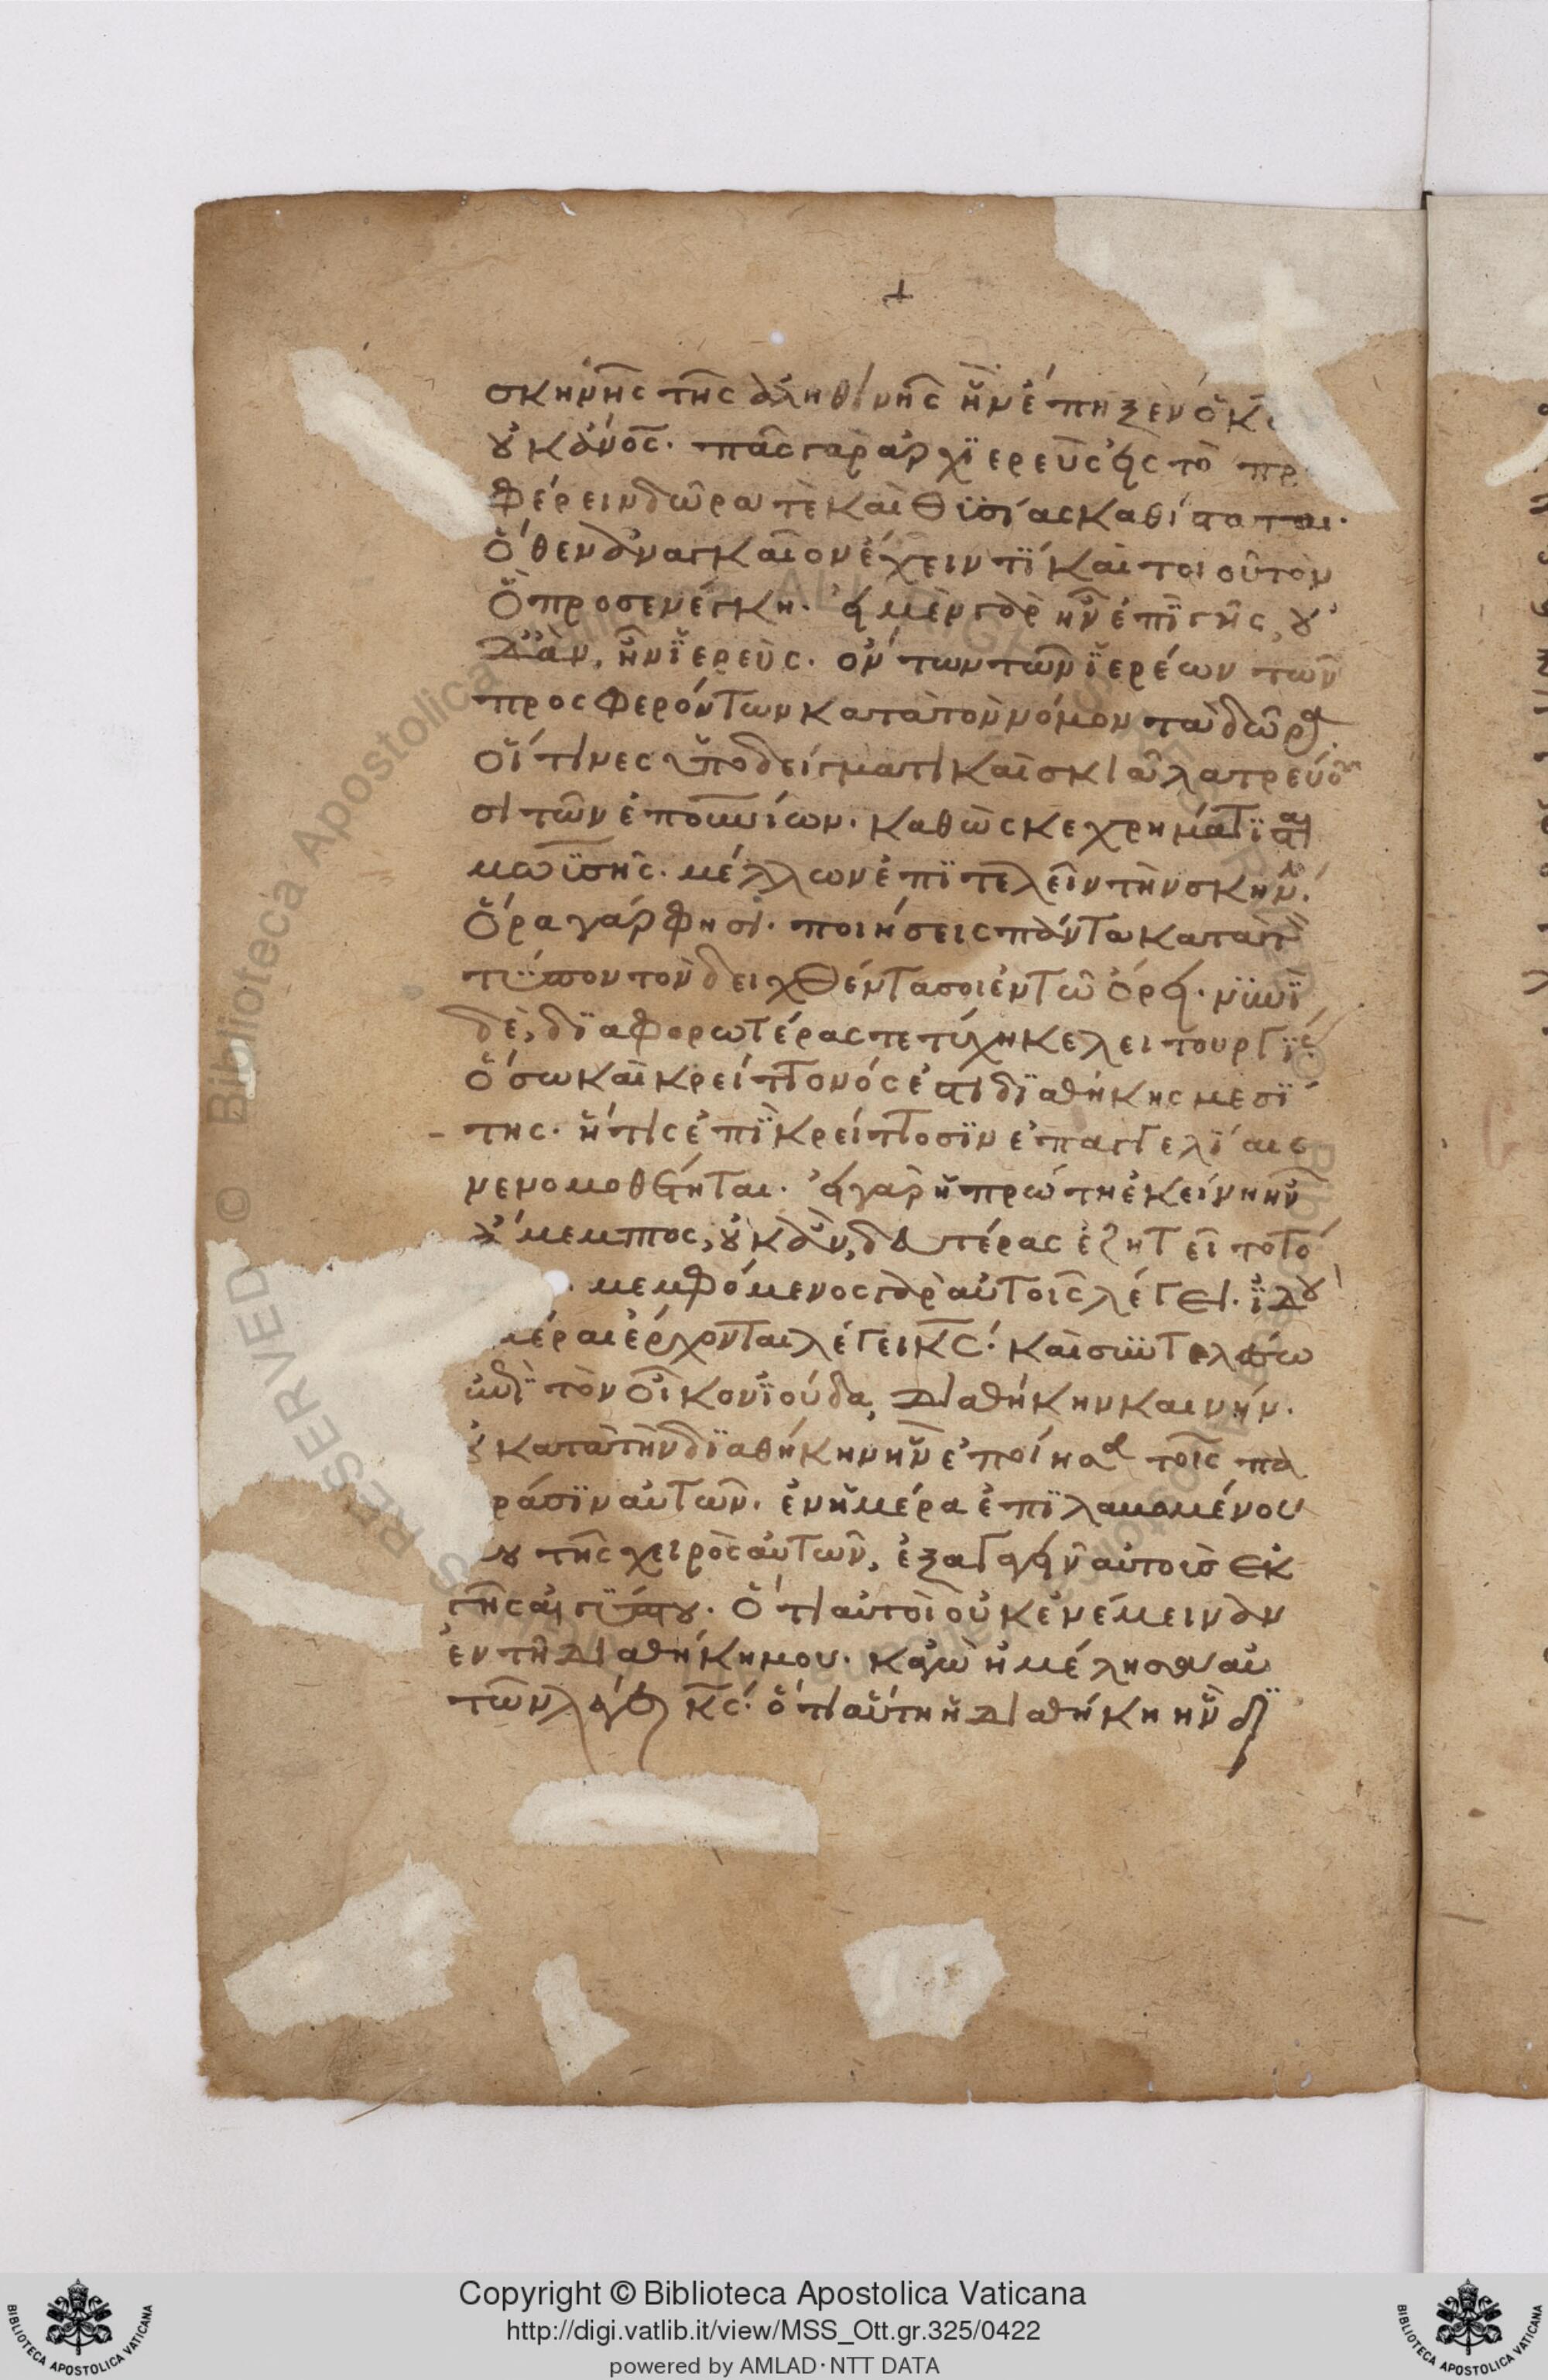 +
σκηνῆς τῆς ἀληθινῆς ἣν ἔπηξεν ὁ κ
οὐκ ἄνος· πᾶς γὰρ ἀρχϊερεὺς εἰς τὸ πρ
φέρειν δῶρα τὲ καὶ θϋσίας καθίσταται·
ὅθεν ἀναγκαῖον ἔχειν τϊ καὶ τοιοῦτον
ὃ προσενέγκη· εἰ μὲν γὰρ ἦν ἐπῒ γῆς, οὐ
δ' ἂν, ἦν ϊερεὺς· ὄντων τῶν ϊερέων τῶν
προσφερόντων κατὰ τὸν νόμον τὰ δῶρα·
οἵτινες ὑποδείγματι καὶ σκιᾶ λατρεύου
σι τῶν ἐπουνίων· καθὼς κεχρημάτϊσται
μωϋσῆς· μέλλων ἐπϊτελεῖν τὴν σκην·
ὅρα γάρ φησι· ποιήσεις πάντα κατὰ τ
τϋπον τὸν δειχθέντα σοι ἐν τῶ ὄρει· νϋνῒ
δὲ, δϊαφορωτέρας τετύχηκε λειτουργϊ
ὅσω καὶ κρείττονός ἐστι δϊαθήκης μεσϊ
της· ἥτις ἐπῒ κρείττοσϊν ἐπαγγελϊαις
νενομοθέτηται· εἰ γὰρ ἡ πρώτη ἐκείνη ἦν
ἄμεμπτος, οὐκ ἂν, δευτέρας ἐζητεῖτο τό
· μεμφόμενος γὰρ αὐτοῖς λέγει· ϊδοὺ
μέραι ἔρχονται λέγει κς· καὶ συντελέσω
ἐπῒ τὸν οἶκον ϊούδα, διαθήκην καινήν·
οὐ κατὰ τὴν δϊαθήκην ἣν ἐποίησα τοῖς πα
ράσϊν αὐτῶν· ἐν ἡμέρα ἐπϊλαμομένου
ου τῆς χειρὸς αὐτῶν, ἐξαγαγεῖν αὐτοὺσ ἐκ
γῆς αἰγϋπτου· ὅτι αὐτοὶ οὐκ ἐνέμειναν
ἐν τῆ διαθήκη μου· κἀγὼ ἠμέλησα αὐ
τῶν λέγει κς· ὅτι αὕτη ἡ διαθήκη ἣν δϊ
Copyright © Biblioteca Apostolica Vaticana
http://digi.vatlib.it/view/MSS_Ott.gr.325/0422
powered by AMLAD·NTT DATA